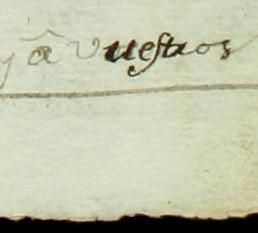 y â vuestros